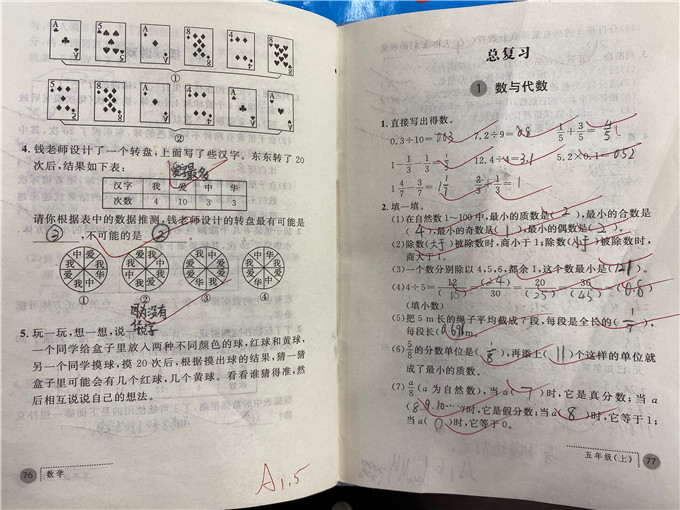 ①
②
4. 钱老师设计了一个转盘,上面写了些汉字。东东转了20
次后,结果如下表:
爱字最多
汉字 我 爱 中 华
次数 4 10 3 3
请你根据表中的数据推测,钱老师设计的转盘最有可能是
③,不可能的是②。
① ② ③ ④
因为没有
华字
5. 玩一玩,想一想,说一说。
一个同学给盒子里放入两种不同颜色的球,红球和黄球,
另一个同学摸球,摸20次后,根据摸出球的结果,猜一猜
盒子里可能会有几个红球,几个黄球。看看谁猜得准,然
后相互说说自己的想法。
76 数学
A 1.5
总复习
1 数与代数
1. 直接写出得数。
0.3÷10=0.03 7.2÷9=0.8 1/5+3/5=4/5
1-1/3-1/3= 12.4÷4=3.1 5.2×0.1=0.52
1 4/7-3/7=1 1/7 2/3+1/3=1
2. 填一填。
(1)在自然数1~100中,最小的质数是(2),最小的合数是
(4),最小的奇数是(1),最小的偶数是(2)。
(2)除数(大于)被除数时,商小于1;除数(小于)被除数时,
商大于1。
(3)一个数分别除以4,5,6,都余1,这个数最小是(121)。
(4)4÷5=12/(15)=(24)/30=20/(25)=36/(45)=(0.8)
(填小数)
(5)把5m长的绳子平均截成7段,每段是全长的(1/7),
每段长
(6)5/8的分数单位是(1/8),再添上(11)个这样的单位就
成了最小的质数。
(7)a/8(a为自然数),当a(7)时,它是真分数;当a
(8.9.10…)时,它是假分数;当a(8)时,它等于1;
当a(0)时,它等于0。
五年级(上) 77